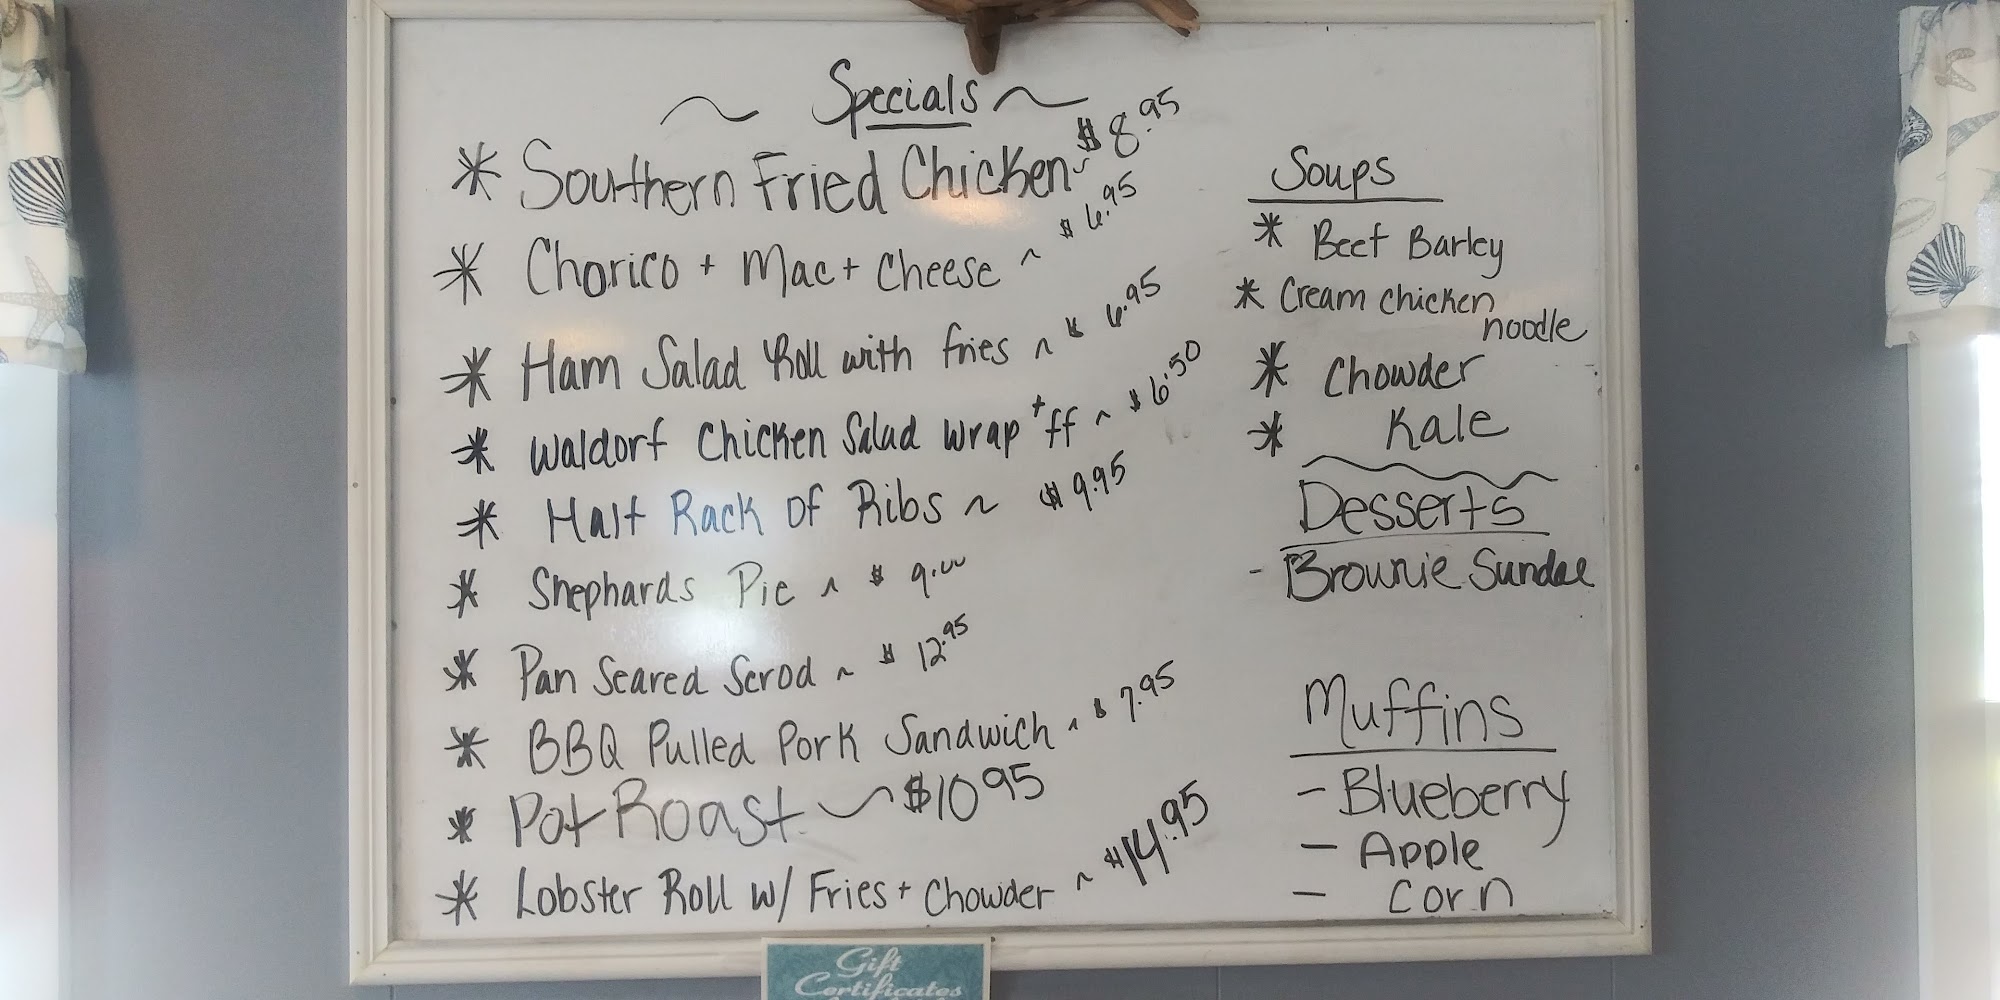 ~ Specials ~
* Southern Fried Chicken ~ $8.95
* Chorico + Mac + Cheese ~ $6.95
* Ham Salad Roll with fries ~ $6.95
* Waldorf Chicken Salad Wrap + ff ~ $6.50
* Half Rack of Ribs ~ $9.95
* Shephards Pie ~ $9.00
* Pan Seared Scrod ~ $12.95
* BBQ Pulled Pork Sandwich ~ $7.95
* Pot Roast ~ $10 95
* Lobster Roll w/ Fries + Chowder ~ $14.95
Soups
* Beef Barley
* Cream Chicken
noodle
* Chowder
* Kale
Desserts
- Brownie Sundae
Muffins
- Blueberry
- Apple
- Corn
Gift
Certificates